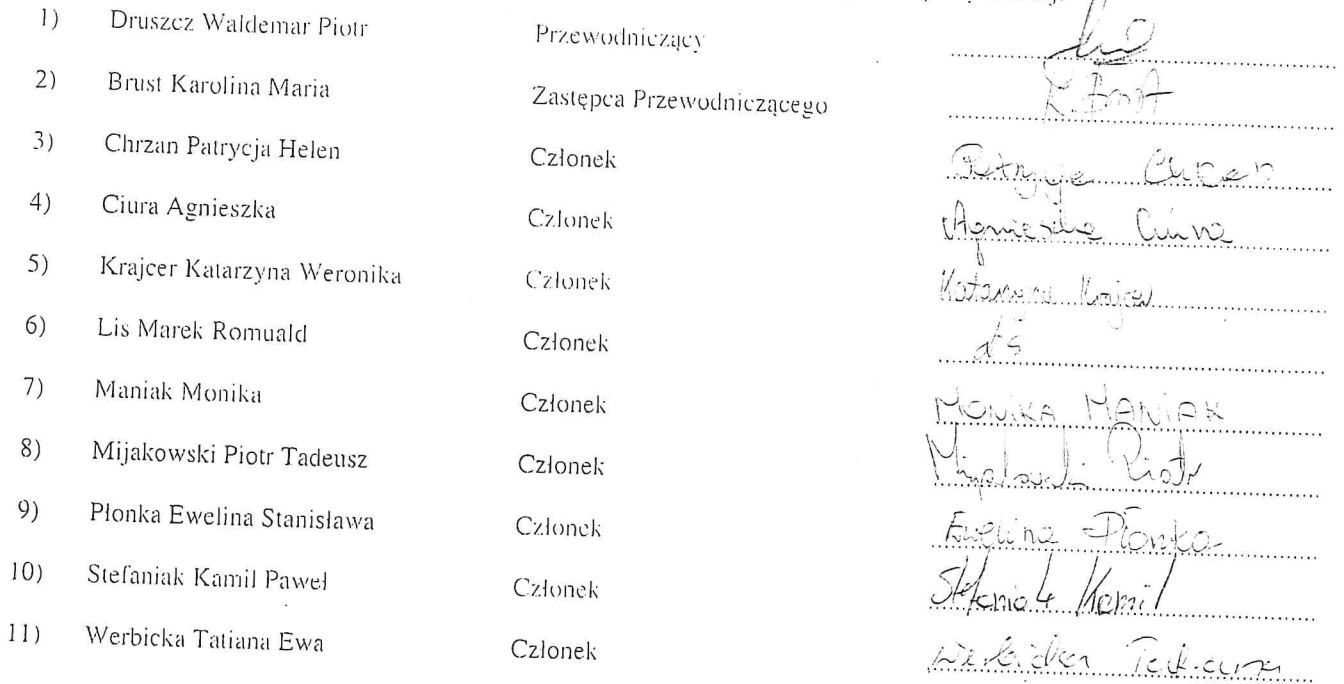 1) Druszcz Waldemar Piotr Przewodniczący
2) Brust Karolina Maria Zastępca Przewodniczącego K. Brust
3) Chrzan Patrycja Helen Członek Patrycja Chrzan
4) Ciura Agnieszka Członek Agnieszka Ciura
5) Krajcer Katarzyna Weronika Członek Katarzyna Krajcer
6) Lis Marek Romuald Członek Lis
7) Maniak Monika Członek MONIKA MANIAK
8) Mijakowski Piotr Tadeusz Członek Mijakowski Piotr
9) Płonka Ewelina Stanisława Członek Ewelina Płonka
10) Stefaniak Kamil Paweł Członek Stefaniak Kamil
11) Werbicka Tatiana Ewa Członek Werbicka Tatiana